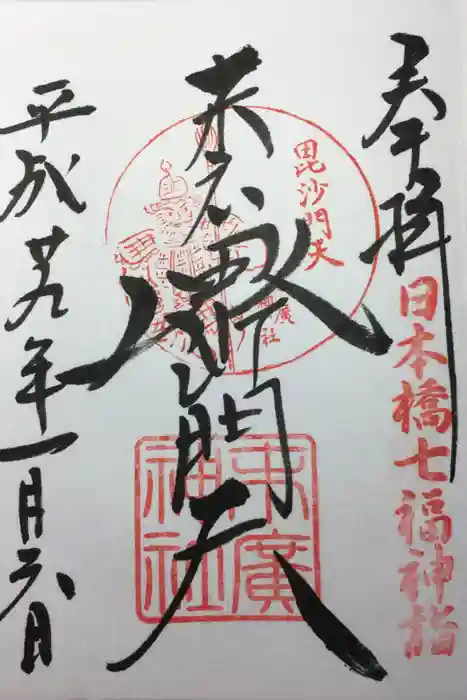 奉拝
日本橋七福神詣
末広
毘沙門天
毘沙門天
末廣神社
末廣神社
平成廿九年一月六日